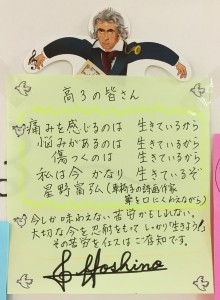 高3の皆さん
痛みを感じるのは 生きているから
悩みがあるのは 生きているから
傷つくのは 生きているから
私は今 かなり 生きているぞ
星野富弘（車椅子の詩画作家
筆を口にくわえながら）
今しか味わえない苦労かもしれない。
大切な今を忍耐をもって しっかり「生きよう」
その苦労を 主はご存知です。
Hoshino